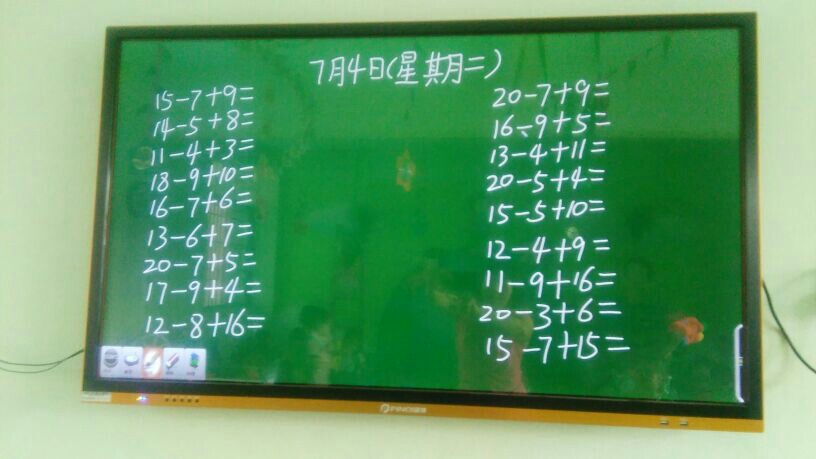 7月4日(星期二)
15-7+9=
14-5+8=
11-4+3=
18-9+10=
16-7+6=
13-6+7=
20-7+5=
17-9+4=
12-8+16=
20-7+9=
16-9+5=
13-4+11=
20-5+4=
15-5+10=
12-4+9=
11-9+16=
20-3+6=
15-7+15=